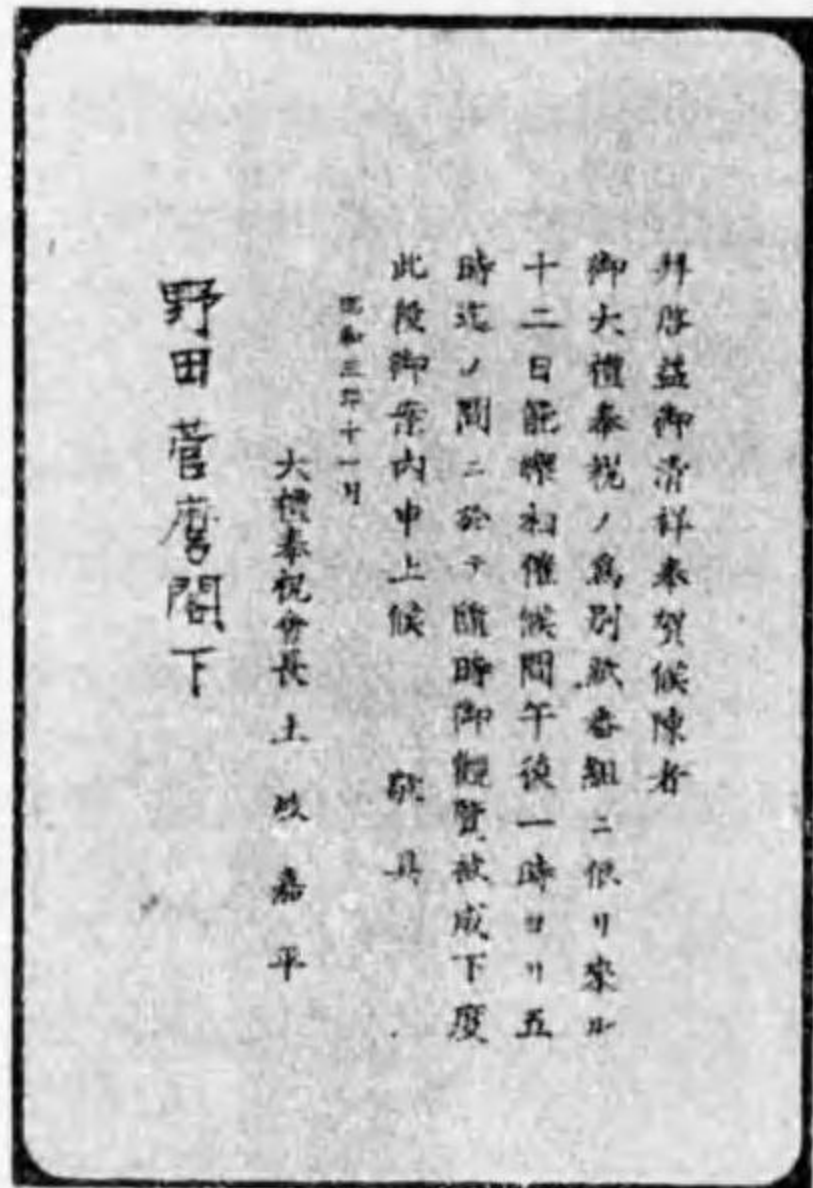 拜啓益御清祥奉賀候陳者
御大禮奉祝ノ爲別紙番組ニ依リ來ル
十二日能樂相催候間午後一時ヨリ五
時迄ノ間ニ於テ隨時御觀覽被成下度
此段御案内申上候 敬具
昭和三年十一月
大禮奉祝會長 土岐嘉平
野田菅麿閣下